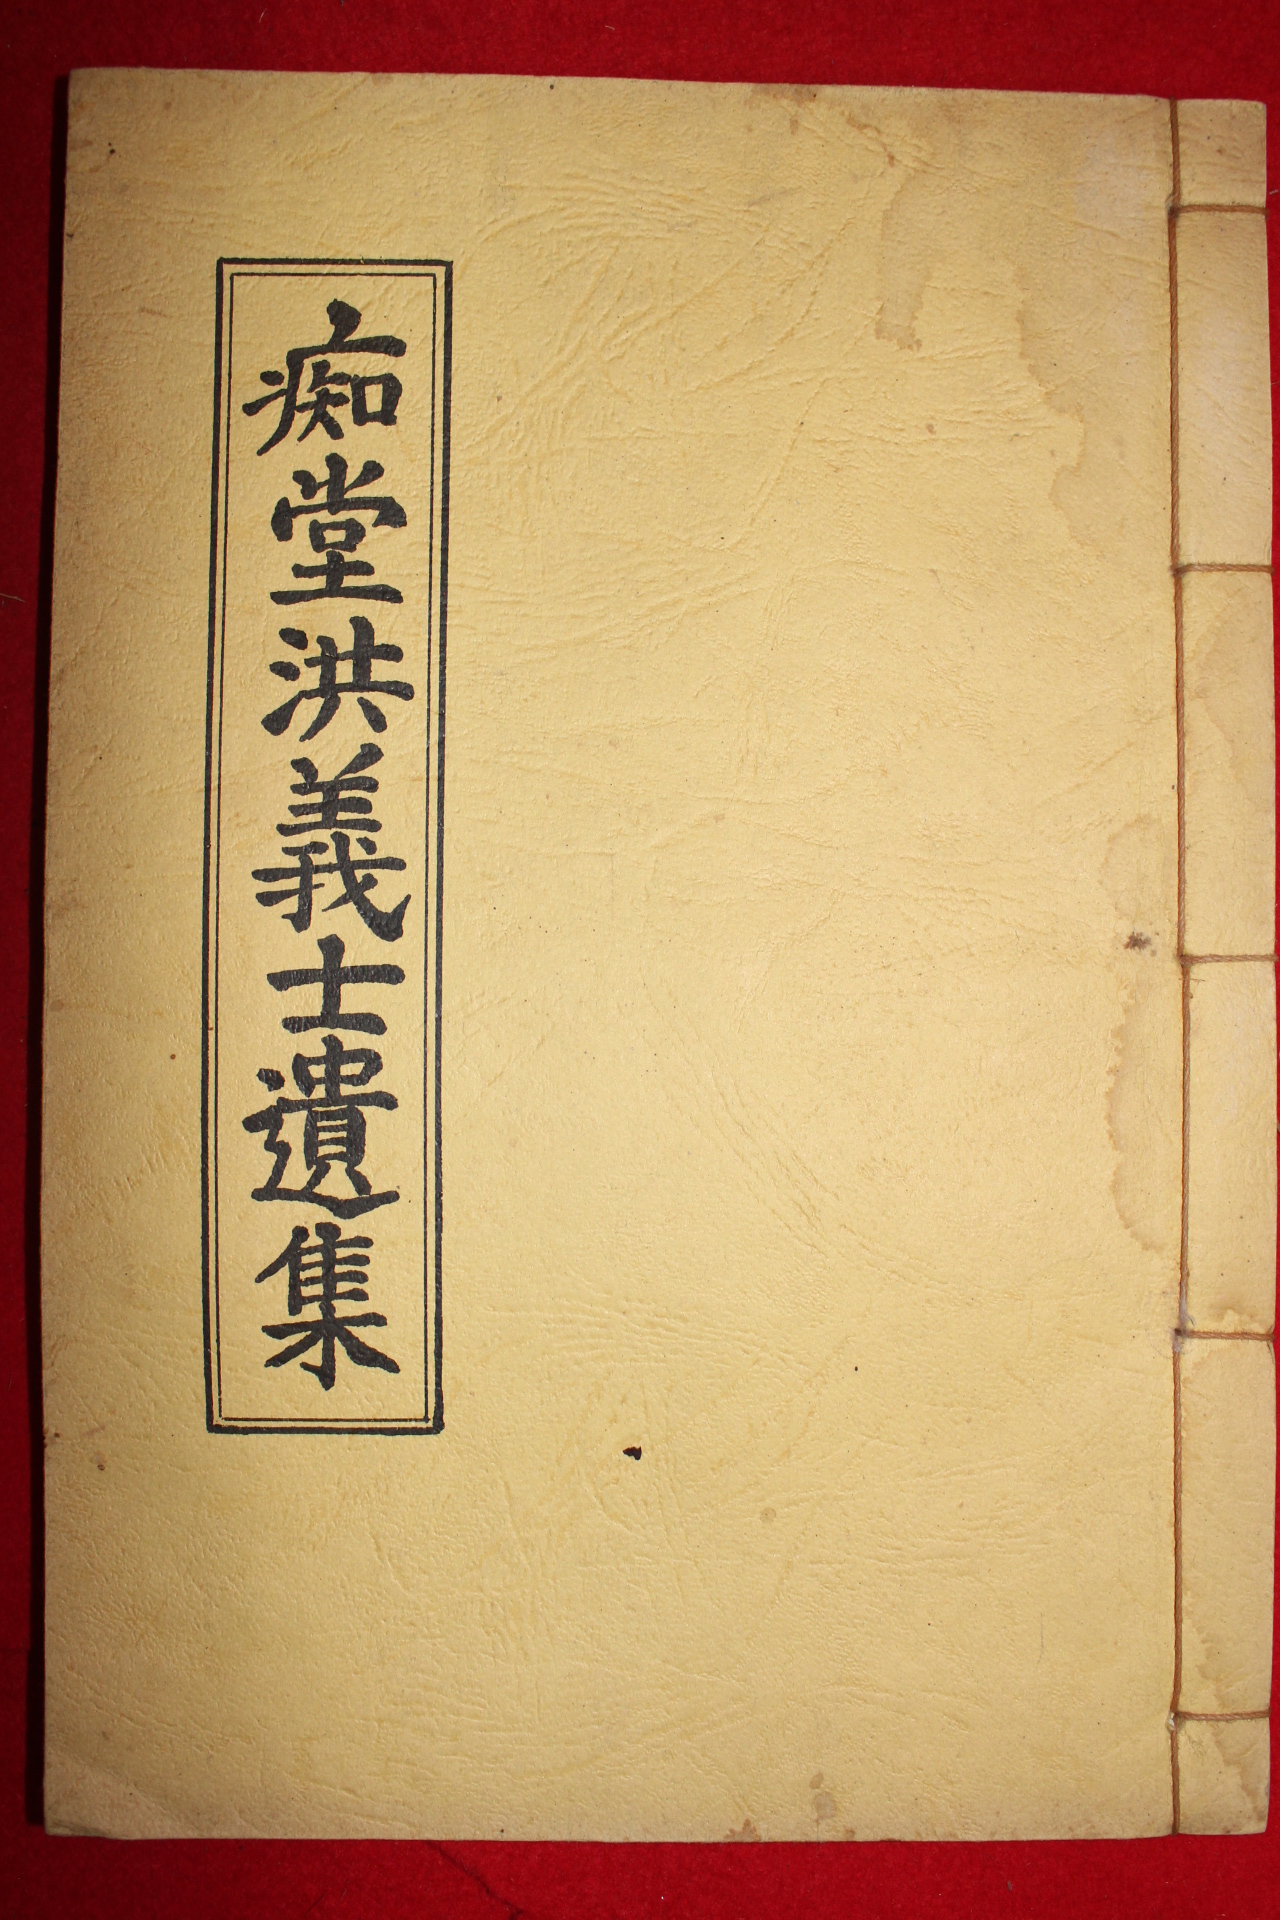 痴堂洪義士遺集